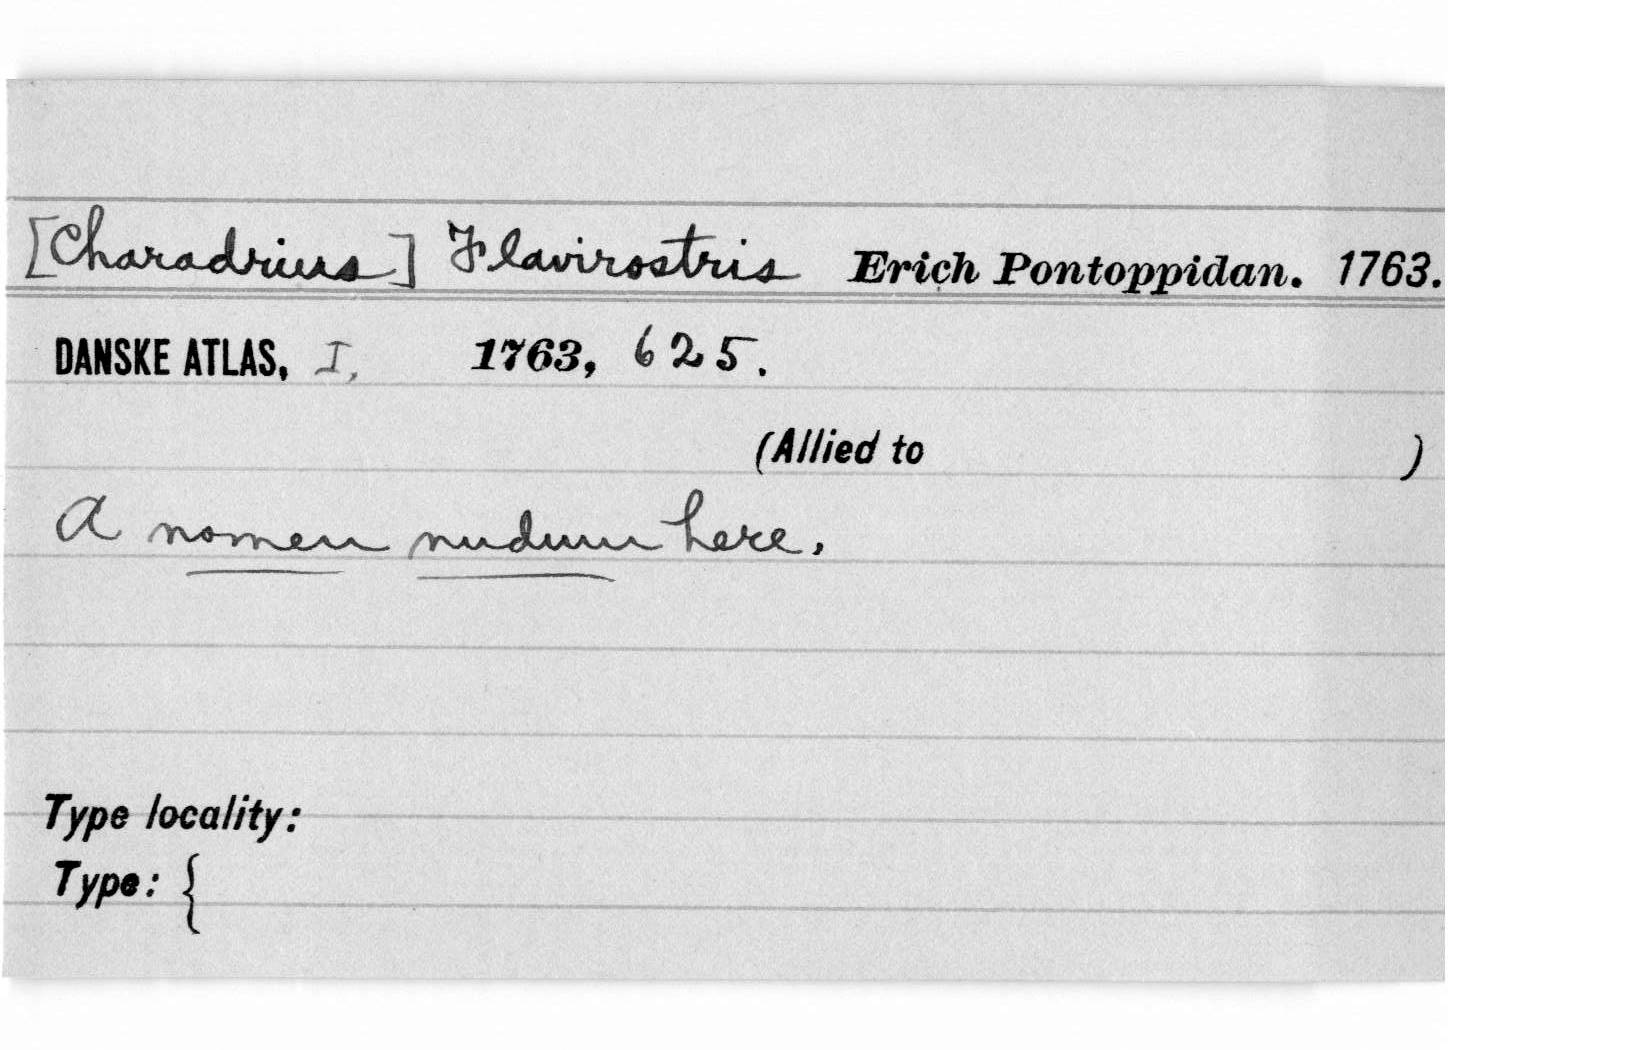 [Charadrius] Flavirostris Erich Pontoppidan. 1763.
DANSKE ATLAS, I, 1763, 625.
(Allied to )
A nomen nudum here.
Type locality:
Type: {